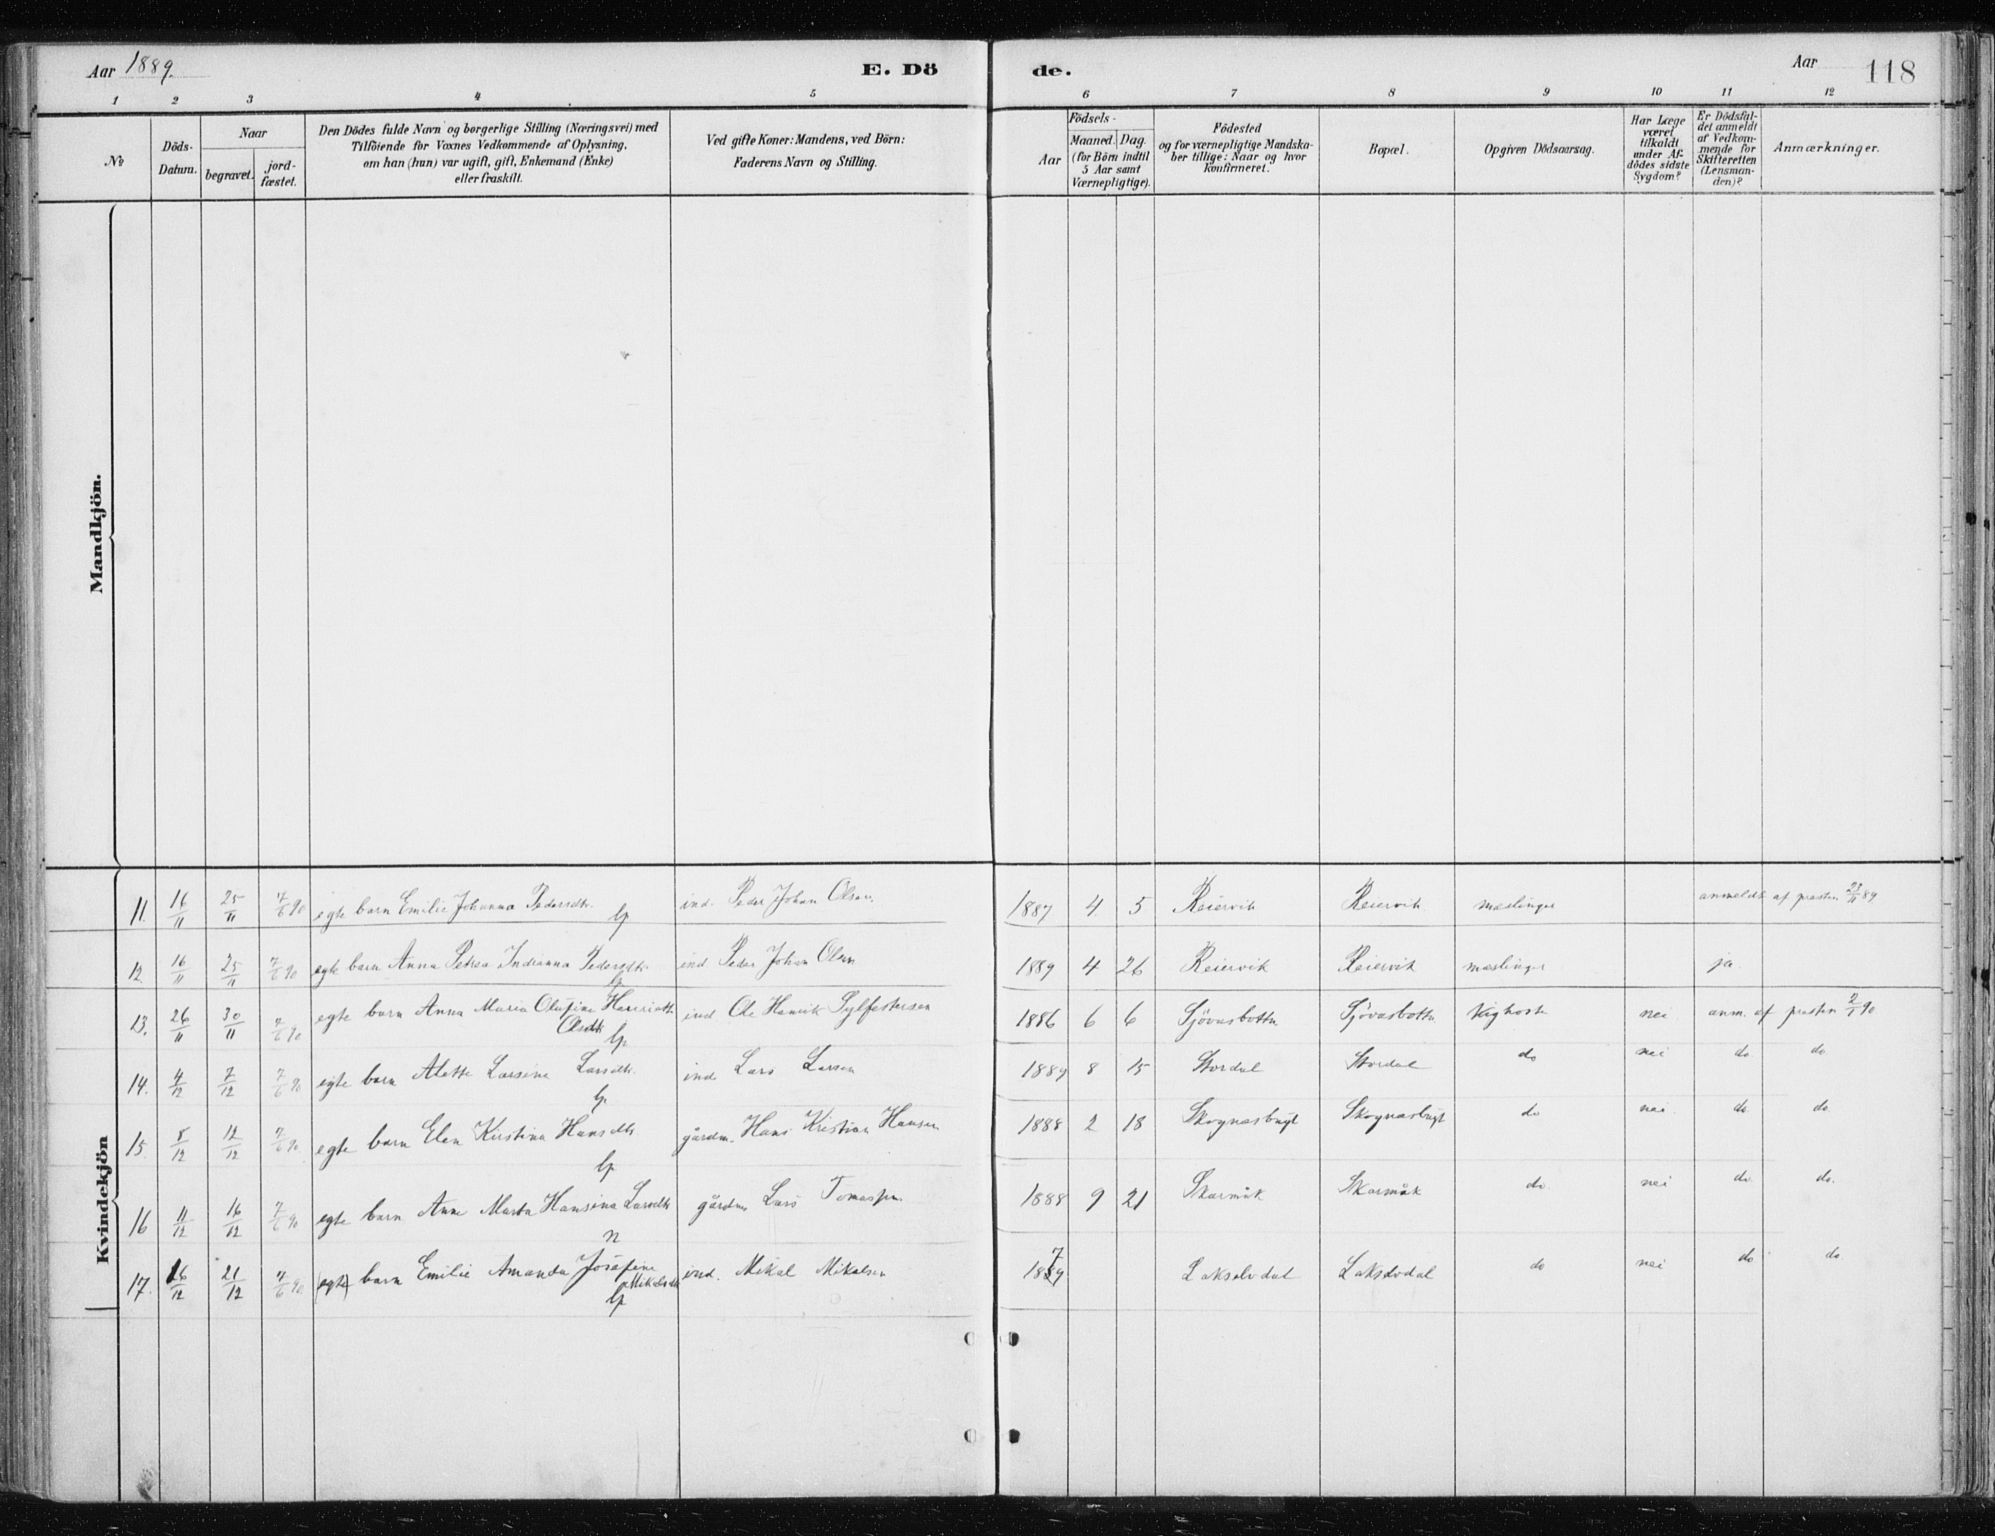 Aar 1889. E. Dö de. Aar 118
1 2 3 4 5 6 7 8 9 10 11 12
No
Döds-Datum.
Naar
begravet.
jordfæstet.
Den Dödes fulde Navn og borgerlige Stilling (Næringsvei) med
Tilföiende for Voxnes Vedkommende af Oplysning,
om han (hun) var ugift, gift, Enkemand (Enke)
eller fraskilt.
Ved gifte Koner: Mandens, ved Börn:
Faderens Navn og Stilling.
Födsels-
Aar
Maaned. Dag.
(for Börn indtil
5 Aar samt
Værnepligtige).
Födested
og for værnepligtige Mandska-
ber tillige: Naar og hvor
konfirmeret.
Bopæl.
Opgiven Dödsaarsag.
Har Læge
været
tilkaldt
under Af-
dödes sidste
Sygdom?
Er Dödsfal-
det anmeldt
af Vedkom-
mende for
Skifteretten
(Lensman-
den)?
Anmærkninger.
Mandkjön.
Kvindekjön
11. 16/11 25/11 7/6 90 egte barn Emilie Johanna Pedersdtr. ind. Peder Johan Olsen 1887 4 5 Reiervik Reiervik mæslinger anmeldt af presten 23/11 89
12. 16/11 25/11 7/6 90 egte barn Anna Petrea Indianna Pedersdtr. ind Peder Johan Olsen 1889 4 26 Reiervik Reiervik mæslinger ja
13. 26/11 30/11 7/6 90 egte barn Anna Maria Olufine Henriette ind Ole Henrik Sylfestersen 1886 6 6 Sjövasbotn Sjövasbotn kighoste nei anm. af presten 2/1 90
Olsdtr
14. 4/12 7/12 7/6 90 egte barn Alette Larsine Larsdtr. ind. Lars Larsen 1889 8 15 Stordal Stordal do nei do. do.
15. 8/12 12/12 7/6 90 egte barn Elen Kirstina Hansdtr gårdm. Hans Kristian Hansen 1888 2 18 Skognasbugt Skognasbugt do nei do. do.
16 11/12 16/12 7/6 90 egte barn Anne Marta Hansina Larsdtr gårdm Lars Tomassen. 1888 9 21 Skarmåk Skarmåk do. nei do. do.
17. 16/12 21/12 7/6 90 (egte) barn Emilie Amanda Josefine ind. Mikal Mikalsen 1889 7 Lakselvdal Lakselvdal do nei do do.
Mikalsdtr